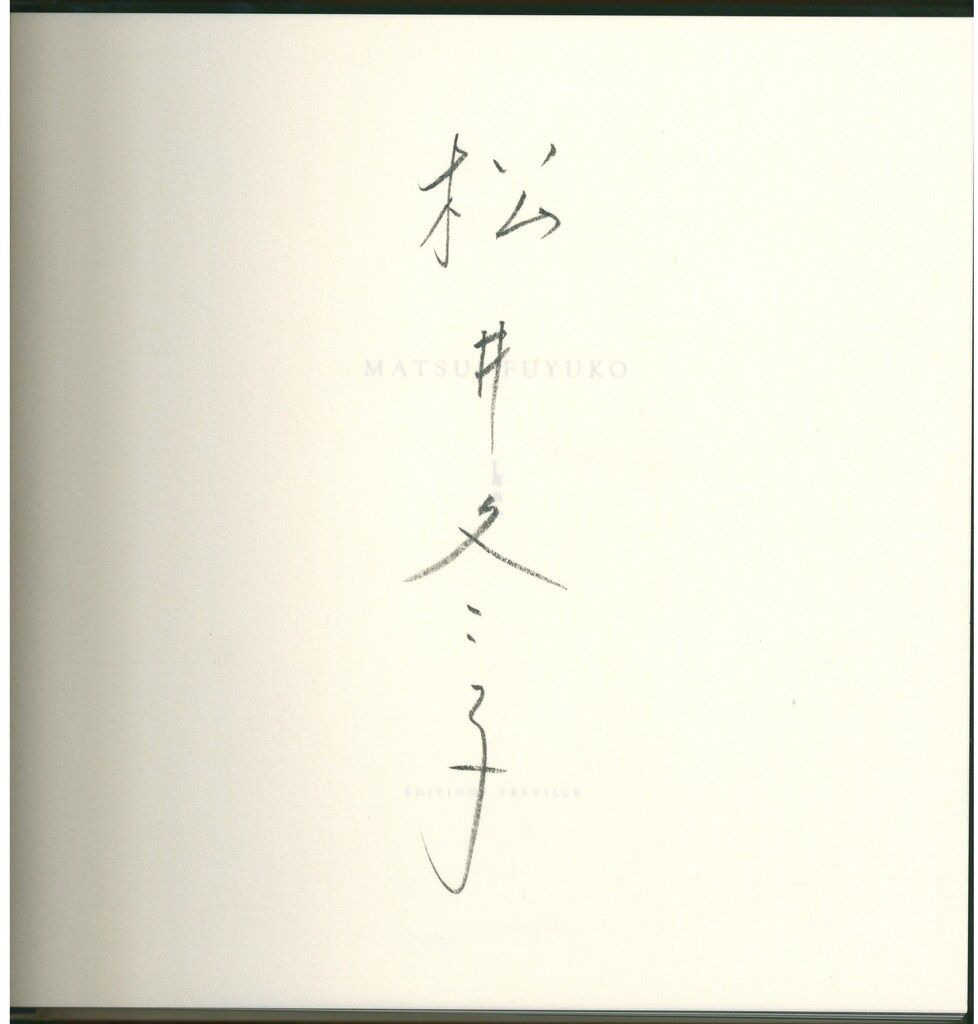 松井冬子
MATSUI FUYUKO
ÉDITIONS TREVILLE